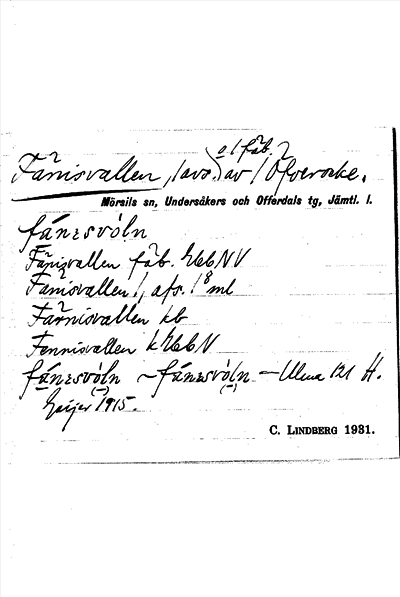 o. / fäb. ?
Fänisvallen, / avs. av / Ofverocke.
Mörsils sn, Undersåkers och Offerdals tg, Jämtl. l.
fánɛsvòln
Fänisvallen fäb.
Fänisvallen /, afs. /
Färnisvallen kb
Fennisvallen k
fánɛsvòln ~ fánɛsvòln — Ulma 121 H.
Geijer 1915.
C. LINDBERG 1931.